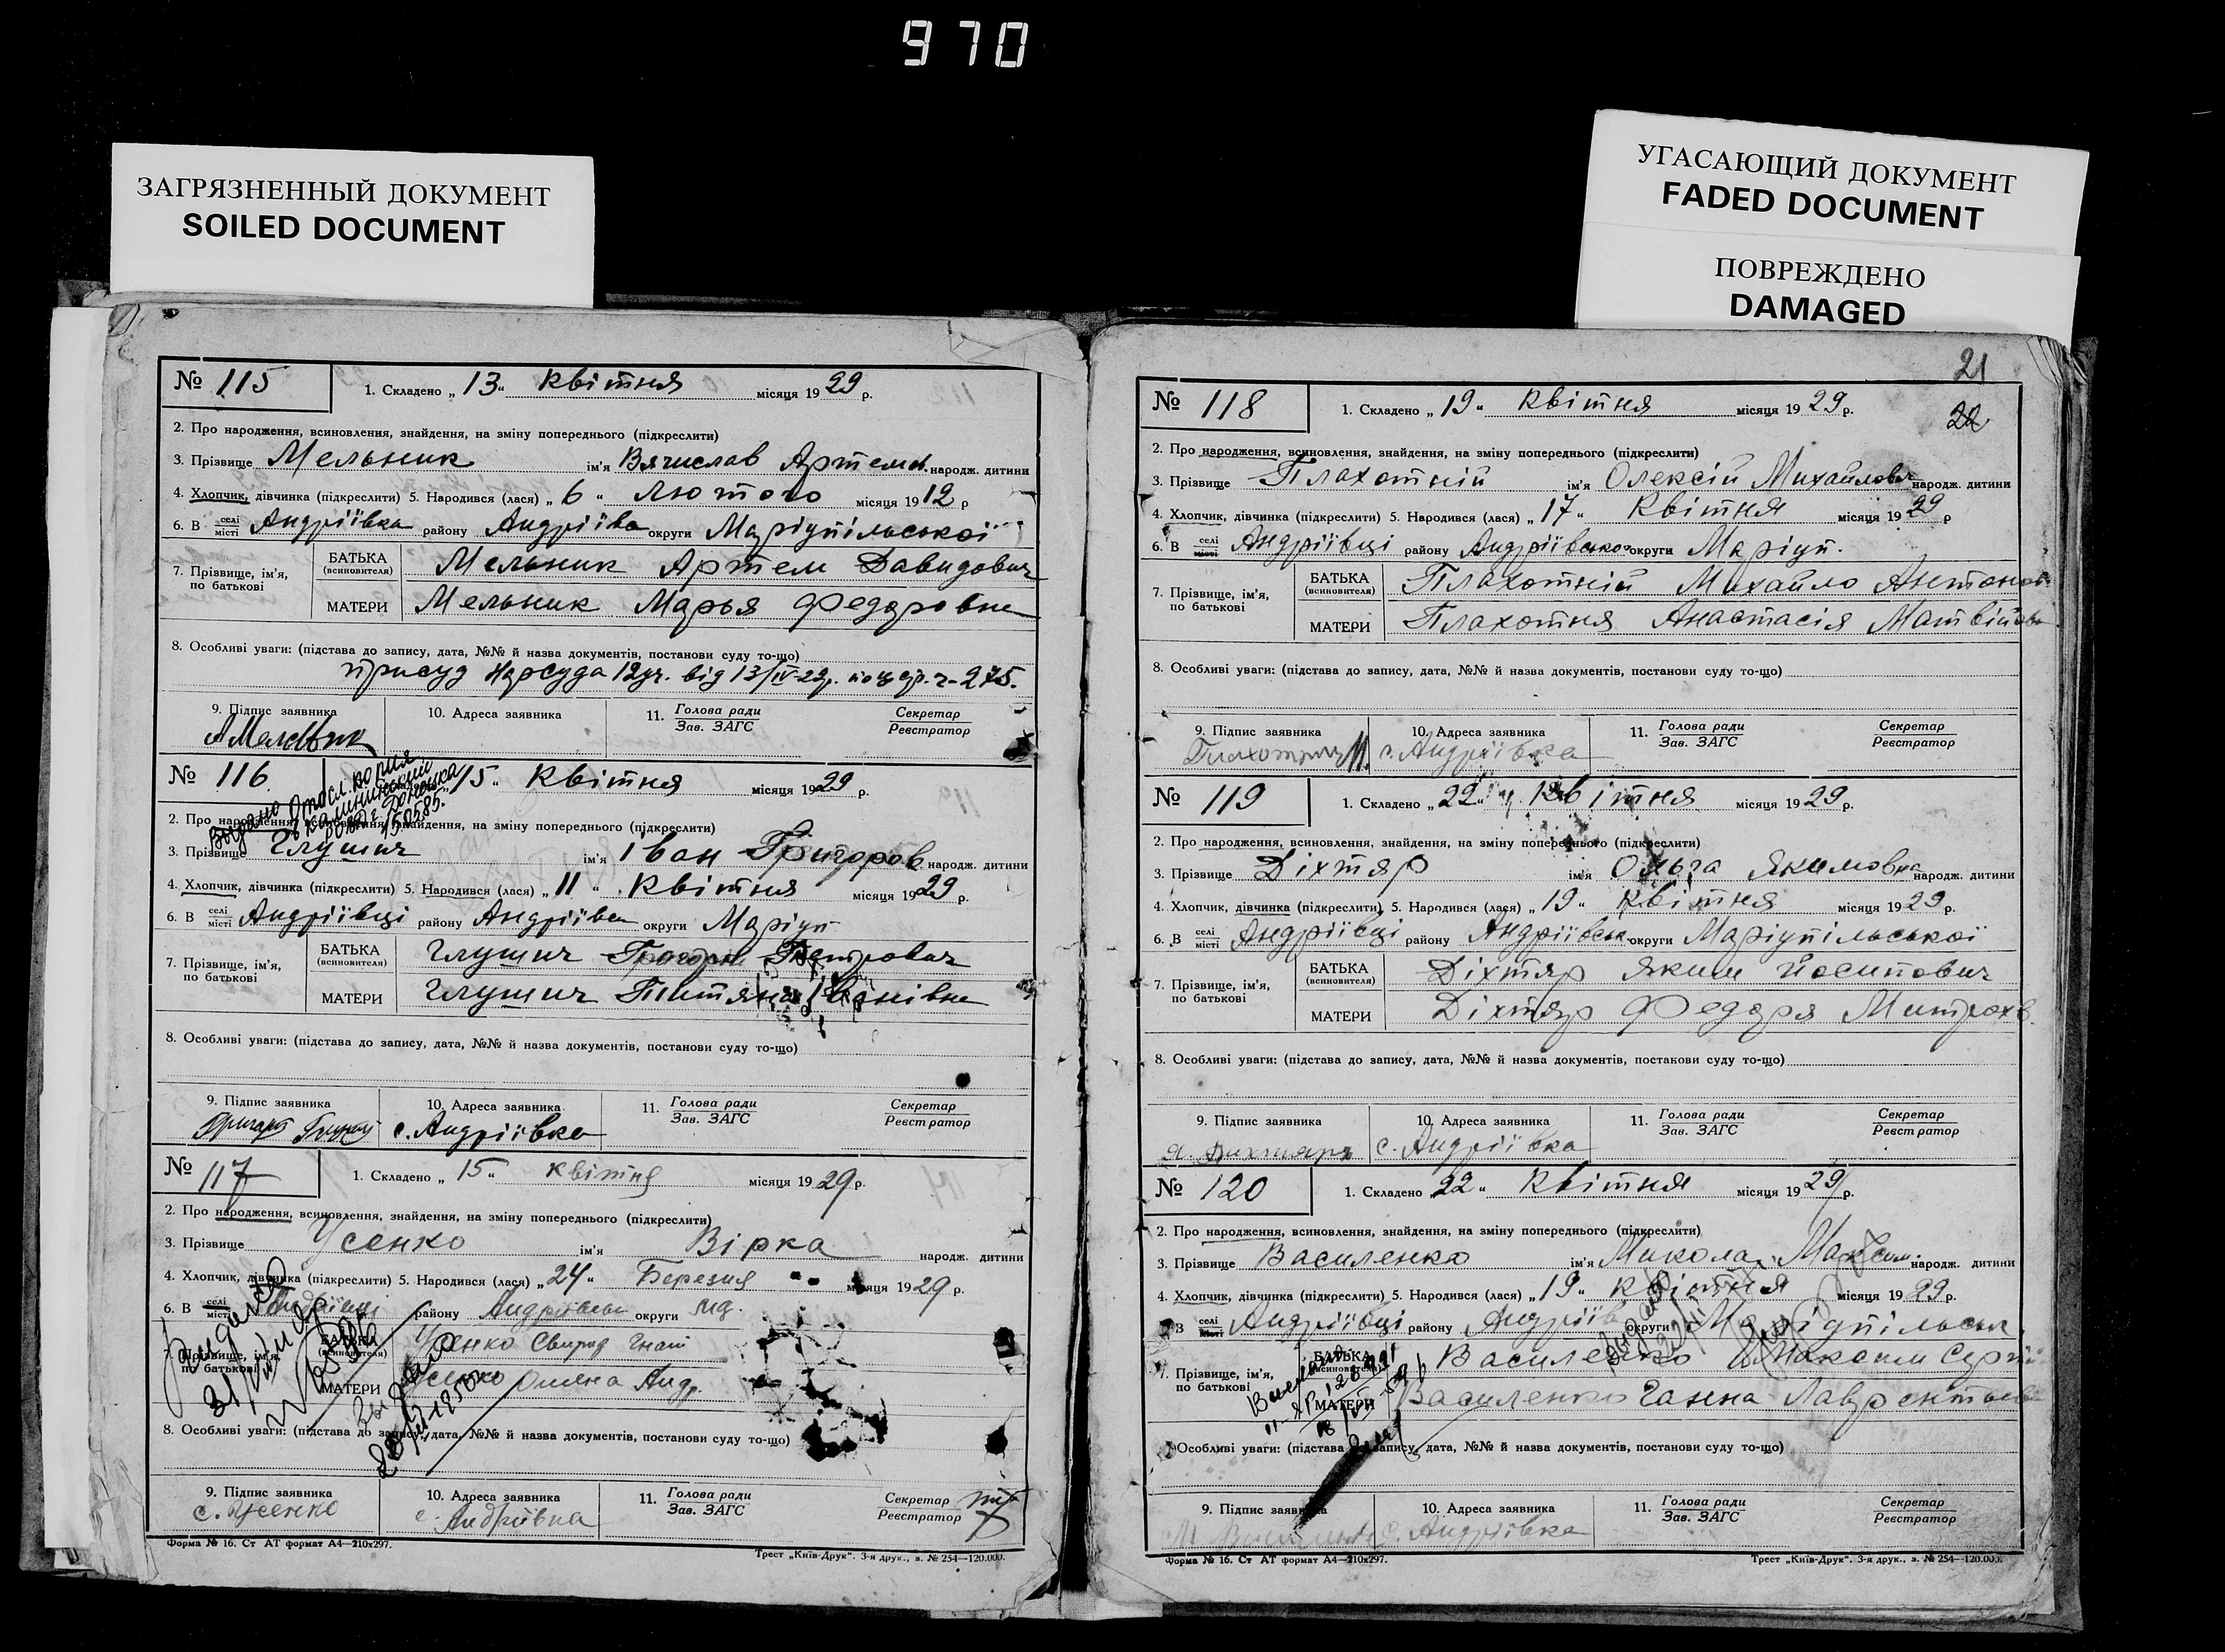 970
ЗАГРЯЗНЕННЫЙ ДОКУМЕНТ
SOILED DOCUMENT
УГАСАЮЩИЙ ДОКУМЕНТ
FADED DOCUMENT
ПОВРЕЖДЕНО
DAMAGED
№ 115 1. Складено „13“ Квітня місяця 1929 р.
2. Про народження, всиновлення, знайдення, на зміну попереднього (підкреслити)
3. Прізвище Мельник ім'я Вячислав Артемов. народж. дитини
4. Хлопчик, дівчинка (підкреслити) 5. Народився (лася) „6“ Лютого місяця 1912 р
6. В селі місті Андріївка району Андріївс округи Маріупільської
7. Прізвище, ім'я, по батькові
БАТЬКА (всиновителя) Мельник Артем Давидович
МАТЕРИ Мельник Марья Федоровна
8. Особливі уваги: (підстава до запису, дата, №№ й назва документів, постанови суду то-що)
присуд Нарсуда 12 уч. від 13/IV-29р. 275.
9. Підпис заявника 10. Адреса заявника 11. Голова ради Зав. ЗАГС Секретар Реєстратор
А Мельник
№ 116 „15“ Квітня місяця 1929 р.
2. Про народження, всиновлення, знайдення, на зміну попереднього (підкреслити)
3. Прізвище Глушич ім'я Іван Григоров народж. дитини
4. Хлопчик, дівчинка (підкреслити) 5. Народився (лася) „11“ Квітня місяця 1929 р.
6. В селі місті Андріївці району Андріївск округи Маріуп
7. Прізвище, ім'я, по батькові
БАТЬКА (всиновителя) Глушич Григорій Петрович
МАТЕРИ Глушич Титяна Іванівна
8. Особливі уваги: (підстава до запису, дата, №№ й назва документів, постанови суду то-що)
9. Підпис заявника 10. Адреса заявника 11. Голова ради Зав. ЗАГС Секретар Реєстратор
с. Андріївка
№ 117 1. Складено „15“ квітня місяця 1929 р.
2. Про народження, всиновлення, знайдення, на зміну попереднього (підкреслити)
3. Прізвище Усенко ім'я Вірка народж. дитини
4. Хлопчик, дівчинка (підкреслити) 5. Народився (лася) „24“ Березня місяця 1929 р.
6. В селі місті Андріївці району Андріївськ округи
7. Прізвище, ім'я, по батькові
БАТЬКА (всиновителя) Усенко Свирид Гнат
МАТЕРИ Усенко Олена Анд.
8. Особливі уваги: (підстава до запису, дата, №№ й назва документів, постанови суду то-що)
9. Підпис заявника 10. Адреса заявника 11. Голова ради Зав. ЗАГС Секретар Реєстратор
с. Усенко с. Андріївка
Форма № 16. Ст АТ формат А4—210х297. Трест „Київ-Друк“. 3-я друк., з. № 254—120.000.
21
22
№ 118 1. Складено „19“ Квітня місяця 1929 р.
2. Про народження, всиновлення, знайдення, на зміну попереднього (підкреслити)
3. Прізвище Плахотній ім'я Олексій Михайлович народж. дитини
4. Хлопчик, дівчинка (підкреслити) 5. Народився (лася) „17“ Квітня місяця 1929 р
6. В селі місті Андріївці району Андріївсько округи Маріуп.
7. Прізвище, ім'я, по батькові
БАТЬКА (всиновителя) Плахотній Михайло Антонов
МАТЕРИ Плахотня Анастасія Матвійовн
8. Особливі уваги: (підстава до запису, дата, №№ й назва документів, постанови суду то-що)
9. Підпис заявника 10. Адреса заявника 11. Голова ради Зав. ЗАГС Секретар Реєстратор
с. Андріївка
№ 119 1. Складено „22“ Квітня місяця 1929 р.
2. Про народження, всиновлення, знайдення, на зміну попереднього (підкреслити)
3. Прізвище Діхтяр ім'я Ольга Якимовна народж. дитини
4. Хлопчик, дівчинка (підкреслити) 5. Народився (лася) „19“ Квітня місяця 1929 р.
6. В селі місті Андріївці району Андріївськ округи Маріупільської
7. Прізвище, ім'я, по батькові
БАТЬКА (всиновителя) Діхтяр Яким Йосипович
МАТЕРИ Діхтяр Федора Митрохв.
8. Особливі уваги: (підстава до запису, дата, №№ й назва документів, постанови суду то-що)
9. Підпис заявника 10. Адреса заявника 11. Голова ради Зав. ЗАГС Секретар Реєстратор
с. Андріївка
№ 120 1. Складено „22“ Квітня місяця 1929 р.
2. Про народження, всиновлення, знайдення, на зміну попереднього (підкреслити)
3. Прізвище Василенко ім'я Микола Максим. народж. дитини
4. Хлопчик, дівчинка (підкреслити) 5. Народився (лася) „19“ квітня місяця 1929 р.
6. В селі місті Андріївці району Андріїв округи Маріупільськ
7. Прізвище, ім'я, по батькові
БАТЬКА (всиновителя) Василенко Максим Сергій
МАТЕРИ Василенко Ганна Лаврентьев
8. Особливі уваги: (підстава до запису, дата, №№ й назва документів, постанови суду то-що)
9. Підпис заявника 10. Адреса заявника 11. Голова ради Зав. ЗАГС Секретар Реєстратор
с. Андріївка
Форма № 16. Ст АТ формат А4—210х297. Трест „Київ-Друк“. 3-я друк., з. № 254—120.000.